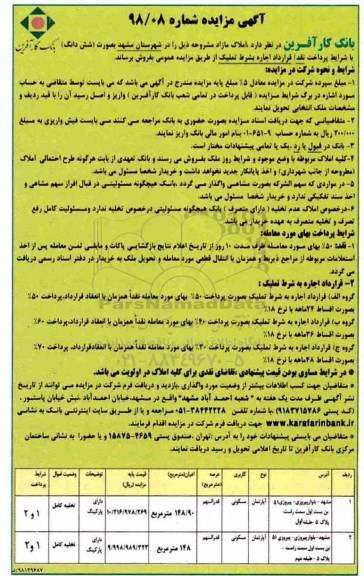 آگهی مزایده شماره ۹۸/۰۸
بانک کارآفرین
بانک کارآفرین در نظر دارد املاک مازاد مشروحه ذیل را در شهرستان مشهد بصورت (شش دانگ)
با شرایط پرداخت نقد/ قرارداد اجاره بشرط تملیک از طریق مزایده عمومی بفروش برساند.
شرایط و نحوه شرکت در مزایده:
۱- مبلغ سپرده شرکت در مزایده معادل ۵٪ مبلغ پایه مزایده مندرج در آگهی می باشد که می بایست توسط متقاضی به حساب
مورد اشاره در برگ شرایط مزایده ( قابل پرداخت در تمامی شعب بانک کارآفرین ) واریز و اصل رسید آن را با قید ردیف و
مشخصات ملک انتخابی تحویل نمایند.
۲- متقاضیانی که جهت دریافت اسناد مزایده بصورت حضوری به بانک مراجعه می کنند می بایست فیش واریزی به مبلغ
۲۰۰/۰۰۰ ریال به شماره حساب بنام امور مالی بانک واریز نمایند.
۳- بانک در قبول یا رد ،یک یا تمامی پیشنهادات مختار است.
۴-کلیه املاک مربوطه با وضع موجود و شرایط روز ملک بفروش می رسند و بانک تعهدی از بابت هرگونه طرح احتمالی املاک
(مطروحه از جانب شهرداری) و اخذ پایانکار جدید نخواهد داشت و خریدار شخصا مسئول می باشد.
۵- در مواردی که سهم الشرکه بصورت مشاعی واگذار می گردد ،بانک هیچگونه مسئولیتی در قبال افراز سهم مشاعی و
اخذ سند تفکیکی ندارد و خریدار شخصا مسئول می باشد.
۶-درخصوص املاک عدم تخلیه ( دارای متصرف ) بانک هیچگونه مسئولیتی درخصوص تخلیه ندارد ومسئولیت کامل رفع
تصرف و تخلیه متصرف به عهده خریدار می باشد.
شرایط پرداخت بهای مورد معامله:
۱- نقد: ۵۰٪ بهای مورد معامله ظرف مدت ۱۰ روز از تاریخ اعلام نتایج بازگشایی پاکات و مابقی ثمن معامله پس از اخذ
استعلامات مربوطه از مراجع ذیربط و همزمان با انتقال قطعی مورد معامله و تحویل ملک به خریدار در دفتر اسناد رسمی دریافت
می گردد.
۲- قرارداد اجاره به شرط تملیک :
گروه الف) قرارداد اجاره به شرط تملیک بصورت پرداخت ۵۰٪ بهای مورد معامله نقداً همزمان با انعقاد قرارداد،پرداخت ۵۰٪
بصورت اقساط ۲۴ماهه با نرخ ۱۸٪
گروه ب) قرارداد اجاره به شرط تملیک بصورت پرداخت ۴۰٪ بهای مورد معامله نقداً همزمان با انعقاد قرارداد،پرداخت ۶۰٪
بصورت اقساط ۳۶ماهه با نرخ ۱۸٪
گروه ج) قرارداد اجاره به شرط تملیک بصورت پرداخت ۳۰٪ بهای مورد معامله نقداً همزمان با انعقادقرارداد، پرداخت ۷۰٪
بصورت اقساط ۴۸ماهه با نرخ ۱۸٪
* در شرایط مساوی بودن قیمت پیشنهادی ،تقاضای نقدی برای کلیه املاک در اولویت می باشد.
* متقاضیان جهت کسب اطلاعات بیشتر از وضعیت مورد واگذاری ،بازدید و دریافت فرم شرکت در مزایده می توانند از تاریخ
نشر آگهی ظرف مدت یک هفته به " شعبه احمد آباد مشهد" واقع در مشهد،خیابان احمدآباد ،نبش خیابان پاستور ،
(کد پستی ۹۱۸۳۷۱۵۷۸۶) ،با شماره تلفن ۰۵۱-۳۸۴۴۲۲۲۸ مراجعه و یا از طریق سایت اینترنتی بانک به نشانی
www.karafarinbank.ir جهت دریافت فرم شرکت در مزایده اقدام فرمایند.
* متقاضیان می بایستی پیشنهادات خود را به آدرس :تهران ،صندوق پستی ۴۶۵۹-۱۵۸۷۵ و یا حضورا به نشانی ساختمان
مرکزی بانک کارآفرین تا تاریخ اعلامی تحویل و رسید دریافت نمایند.
ردیف آدرس نوع کاربری عرصه (مترمربع) اعیان(مترمربع) قیمت پایه مزایده (ریال) توضیحات وضعیت اموال شرایط پرداخت
۱ مشهد- بلوارپیروزی- پیروزی۵۱ بن بست اول سمت راست - پلاک ۵ -طبقه اول آپارتمان مسکونی قدرالسهم ۱۴۸/۹۰ مترمربع ۱۰/۲۱۶/۹۷۸/۲۶۹ دارای پارکینگ تخلیه کامل ۱ و ۲
۲ مشهد- بلوارپیروزی- پیروزی ۵۱ بن بست اول سمت راست - پلاک ۵ -طبقه دوم آپارتمان مسکونی قدرالسهم ۱۴۸ مترمربع ۹/۹۹۸/۹۸۹/۳۲۳ دارای پارکینگ تخلیه کامل ۱ و ۲